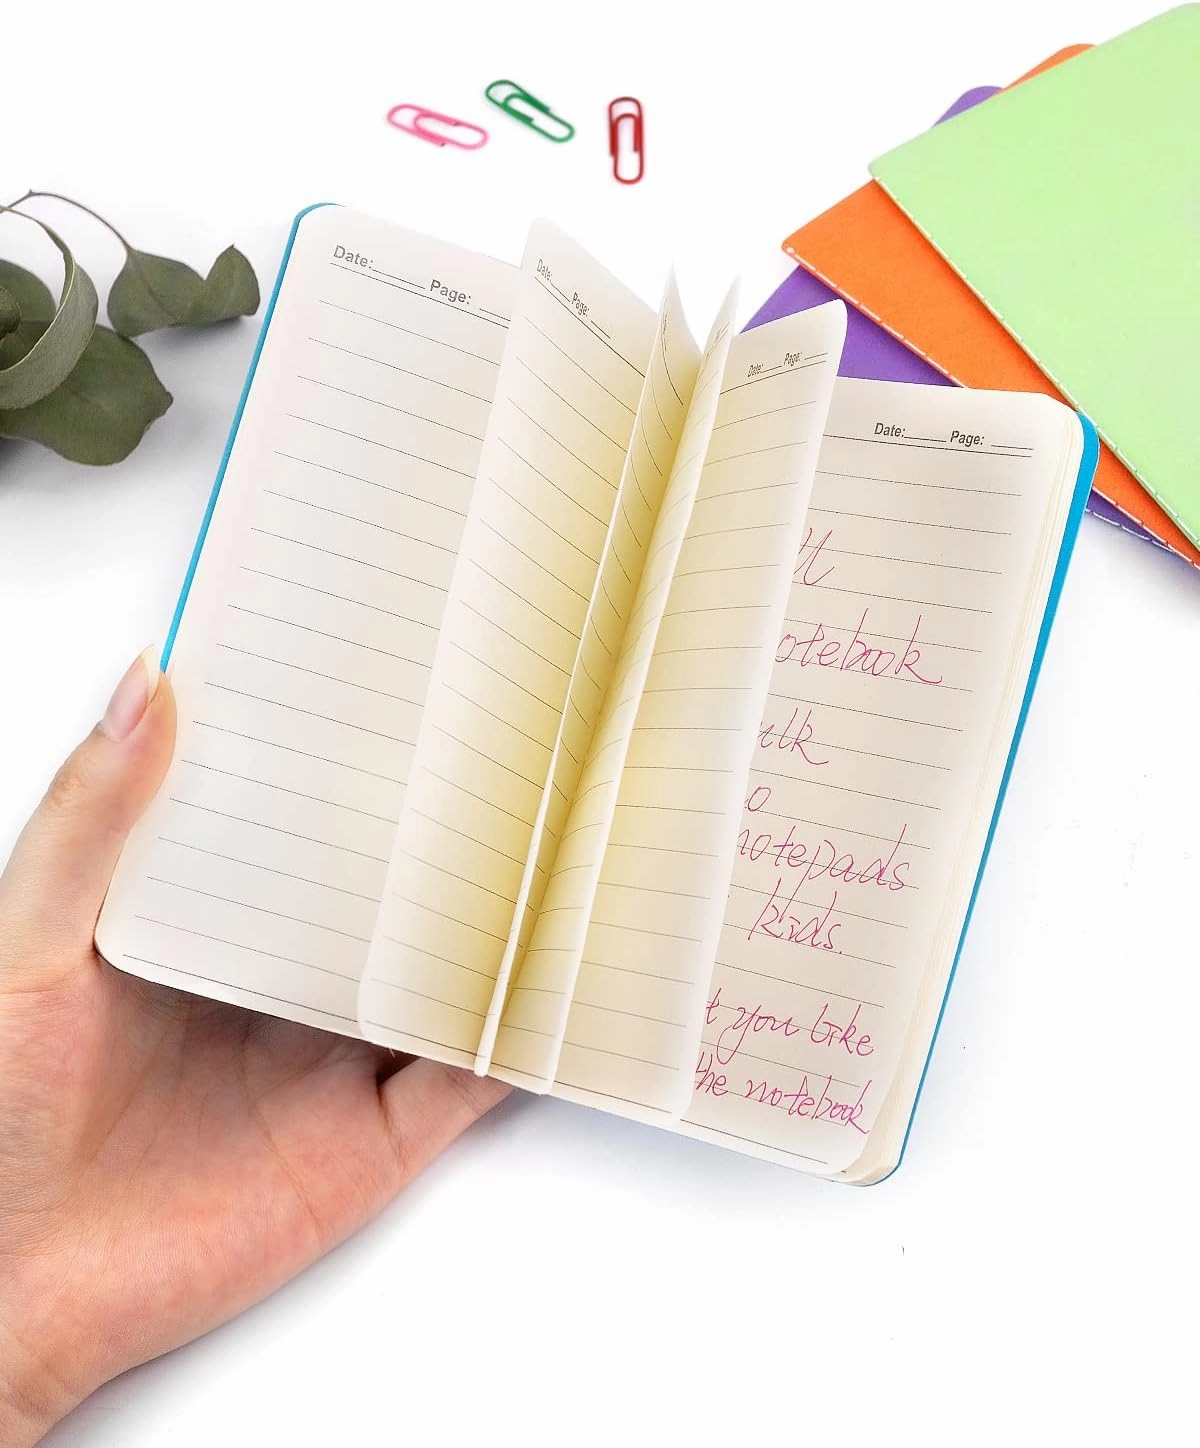 Date:_____ Page: _____
Date:_____ Page: ___
Date:_____ Page: ____
Date:_____ Page: _____
otebook
notepads
kids.
t you like
the notebook